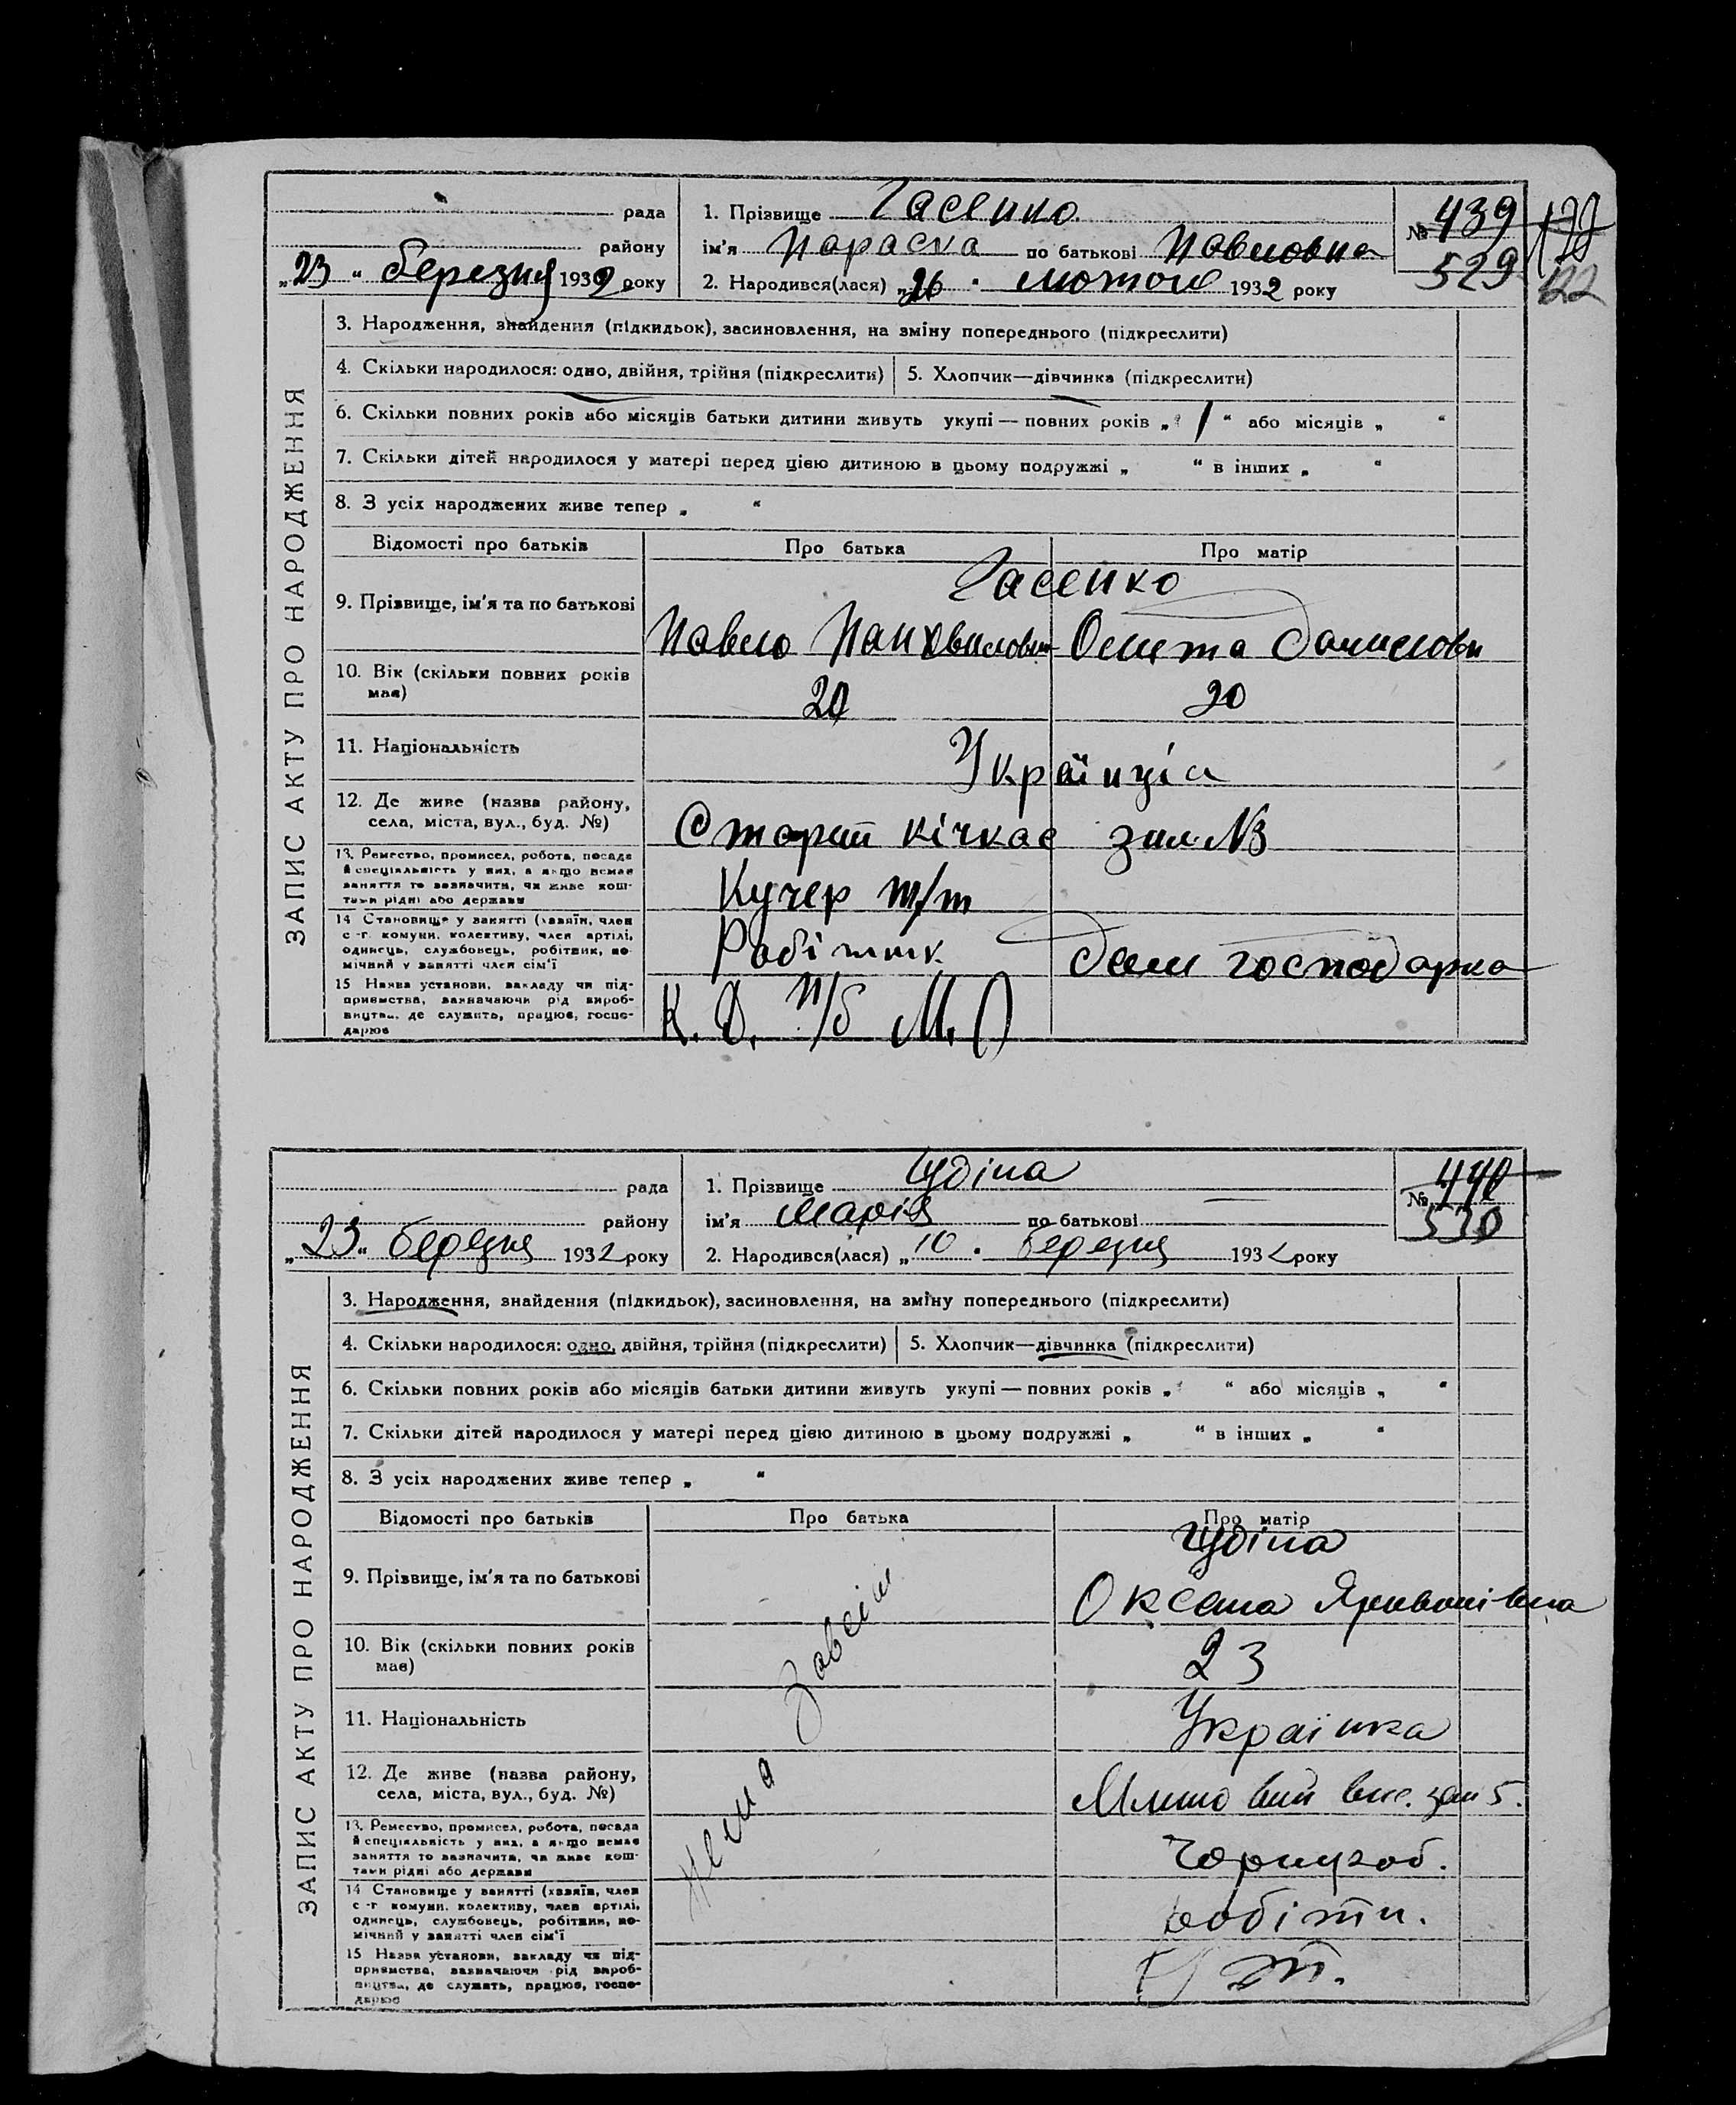 рада
району
„23“ березня 1932 року
1. Прізвище Гасенко
ім'я Параска по батькові Павловна
2. Народився(лася) „26“ лютого 1932 року
№ 439
529
122
ЗАПИС АКТУ ПРО НАРОДЖЕННЯ
3. Народження, знайдення (підкидьок), засиновлення, на зміну попереднього (підкреслити)
4. Скільки народилося: одно, двійня, трійня (підкреслити)
5. Хлопчик—дівчинка (підкреслити)
6. Скільки повних років або місяців батьки дитини живуть укупі — повних років „ 1 “ або місяців „ “
7. Скільки дітей народилося у матері перед цією дитиною в цьому подружжі „ “ в інших „ “
8. З усіх народжених живе тепер „ “
Відомості про батьків
Про батька
Про матір
9. Прізвище, ім'я та по батькові
Гасенко
Павло Панхвилович
Данилови
10. Вік (скільки повних років
має)
20
20
11. Національність
Українціа
12. Де живе (назва району,
села, міста, вул., буд. №)
Старий кічкас
13. Ремество, промисел, робота, посада
й спеціяльність у них, а якщо немає
заняття то зазначити, чи живе кош-
тами рідні або держави
Кучер т/т
14 Становище у занятті (хазяїн, член
с -г. комуни, колективу, член артілі,
одинець, службовець, робітник, по-
мічний у занятті член сім'ї
Робітник
Дом господарка
15 Назва установи, закладу чи під-
приємства, зазначаючи рід вироб-
ництва, де служить, працює, госпо-
дарює
К. Д. п/б М. О
рада
району
„23“ березня 1932 року
1. Прізвище Гудіна
ім'я Марія по батькові
2. Народився(лася) „10“ березня 1932 року
№ 440
530
ЗАПИС АКТУ ПРО НАРОДЖЕННЯ
3. Народження, знайдення (підкидьок), засиновлення, на зміну попереднього (підкреслити)
4. Скільки народилося: одно, двійня, трійня (підкреслити)
5. Хлопчик—дівчинка (підкреслити)
6. Скільки повних років або місяців батьки дитини живуть укупі — повних років „ “ або місяців „ “
7. Скільки дітей народилося у матері перед цією дитиною в цьому подружжі „ “ в інших „ “
8. З усіх народжених живе тепер „ “
Відомості про батьків
Про батька
Про матір
9. Прізвище, ім'я та по батькові
Гудіна
Оксана
10. Вік (скільки повних років
має)
23
11. Національність
Українка
12. Де живе (назва району,
села, міста, вул., буд. №)
5.
13. Ремество, промисел, робота, посада
й спеціяльність у них, а якщо немає
заняття то зазначити, чи живе кош-
тами рідні або держави
Чорнороб.
14 Становище у занятті (хазяїн, член
с -г комуни, колективу, член артілі,
одинець, службовець, робітник, по-
мічний у занятті член сім'ї
робітн.
15 Назва установи, закладу чи під-
приємства, зазначаючи рід вироб-
ництва, де служить, працює, госпо-
дарює
Нема Зовсім